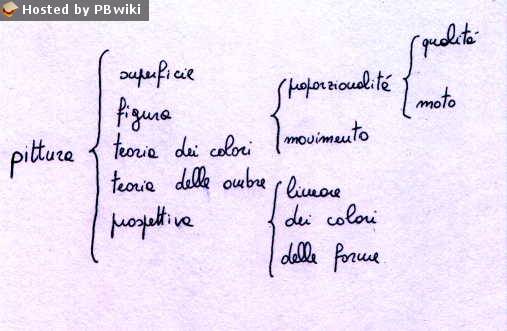 Hosted by PBwiki
pittura
superficie
figura
teoria dei colori
teoria delle ombre
prospettiva
proporzionalità
movimento
qualità
moto
lineare
dei colori
delle forme